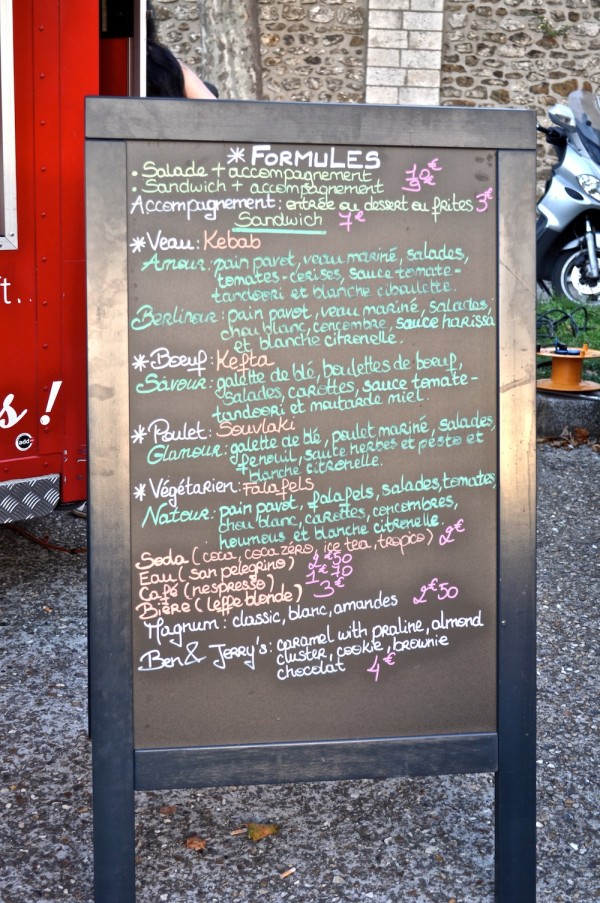 * FORMULES
• Salade + accompagnement 10€
• Sandwich + accompagnement 9€
Accompagnement : entrée ou dessert ou frites 3€
Sandwich 7€
* Veau : Kebab
Amour : pain pavot, veau mariné, salades,
tomates-cerises, sauce tomate-
tandoori et blanche ciboulette.
Berlinour : pain pavot, veau mariné, salades,
chou blanc, concombre, sauce harissa
et blanche citronelle.
* Boeuf : Kefta
Savour : galette de blé, boulettes de boeuf,
salades, carottes, sauce tomate-
tandoori et moutarde miel.
* Poulet : Souvlaki
Glamour : galette de blé, poulet mariné, salades,
fenouil, sauce herbes et pesto et
blanche citronelle.
* Végétarien : Falafels
Natour : pain pavot, falafels, salades, tomates,
chou blanc, carottes, concombres,
houmous et blanche citronelle.
Soda (coca, coca zéro, ice tea, tropico) 2€
Eau (san pelegrino) 2€50
Café (nespresso) 1€70
Bière (leffe blonde) 3€
Magnum : classic, blanc, amandes 2€50
Ben & Jerry's : caramel with praline, almond
cluster, cookie, brownie
chocolat 4€
t..
s !